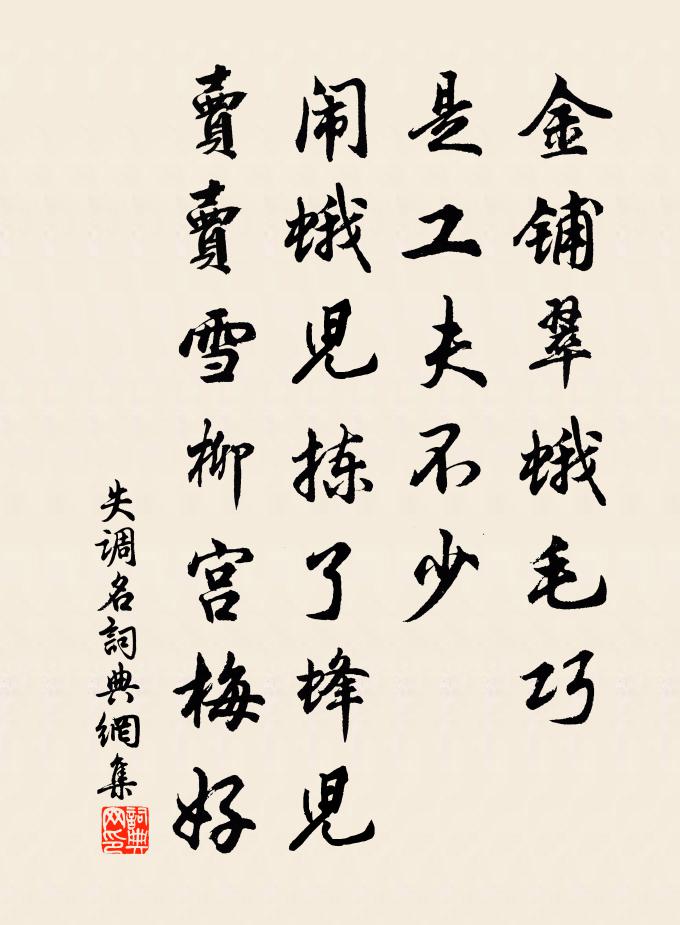 金铺翠蛾毛巧
是工夫不少
闹蛾児拣了蜂児
賣賣雪柳宫梅好
失调名詞典網集
詞典网印